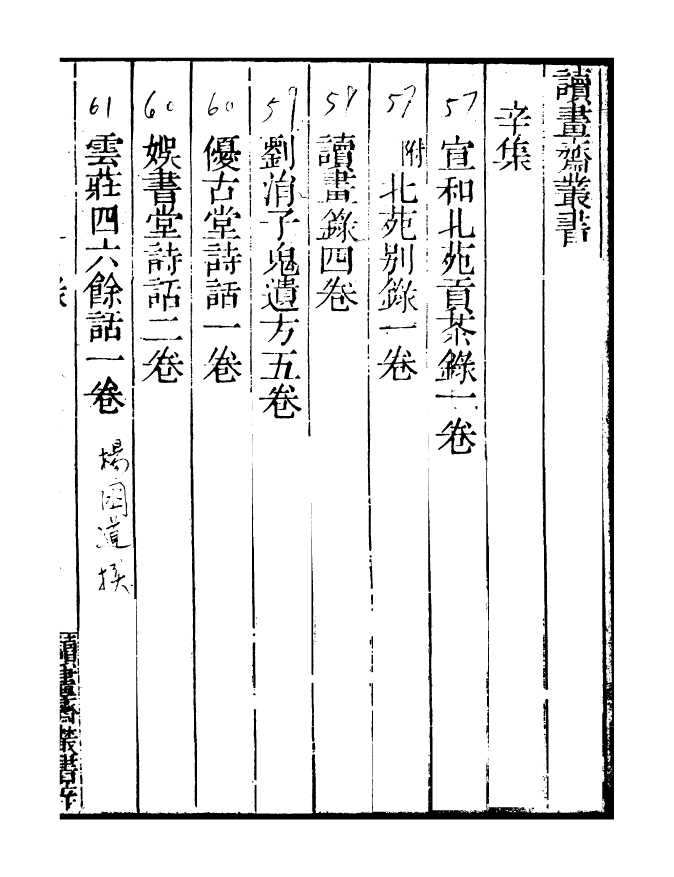 讀畫齋叢書
辛集
57 宣和北苑貢茶錄一卷
57 附北苑别錄一卷
58 讀畫錄四卷
59 劉涓子鬼遺方五卷
60 優古堂詩話一卷
60 娛書堂詩話二卷
61 雲莊四六餘話一卷 楊囦道撰
讀畫齋叢書辛